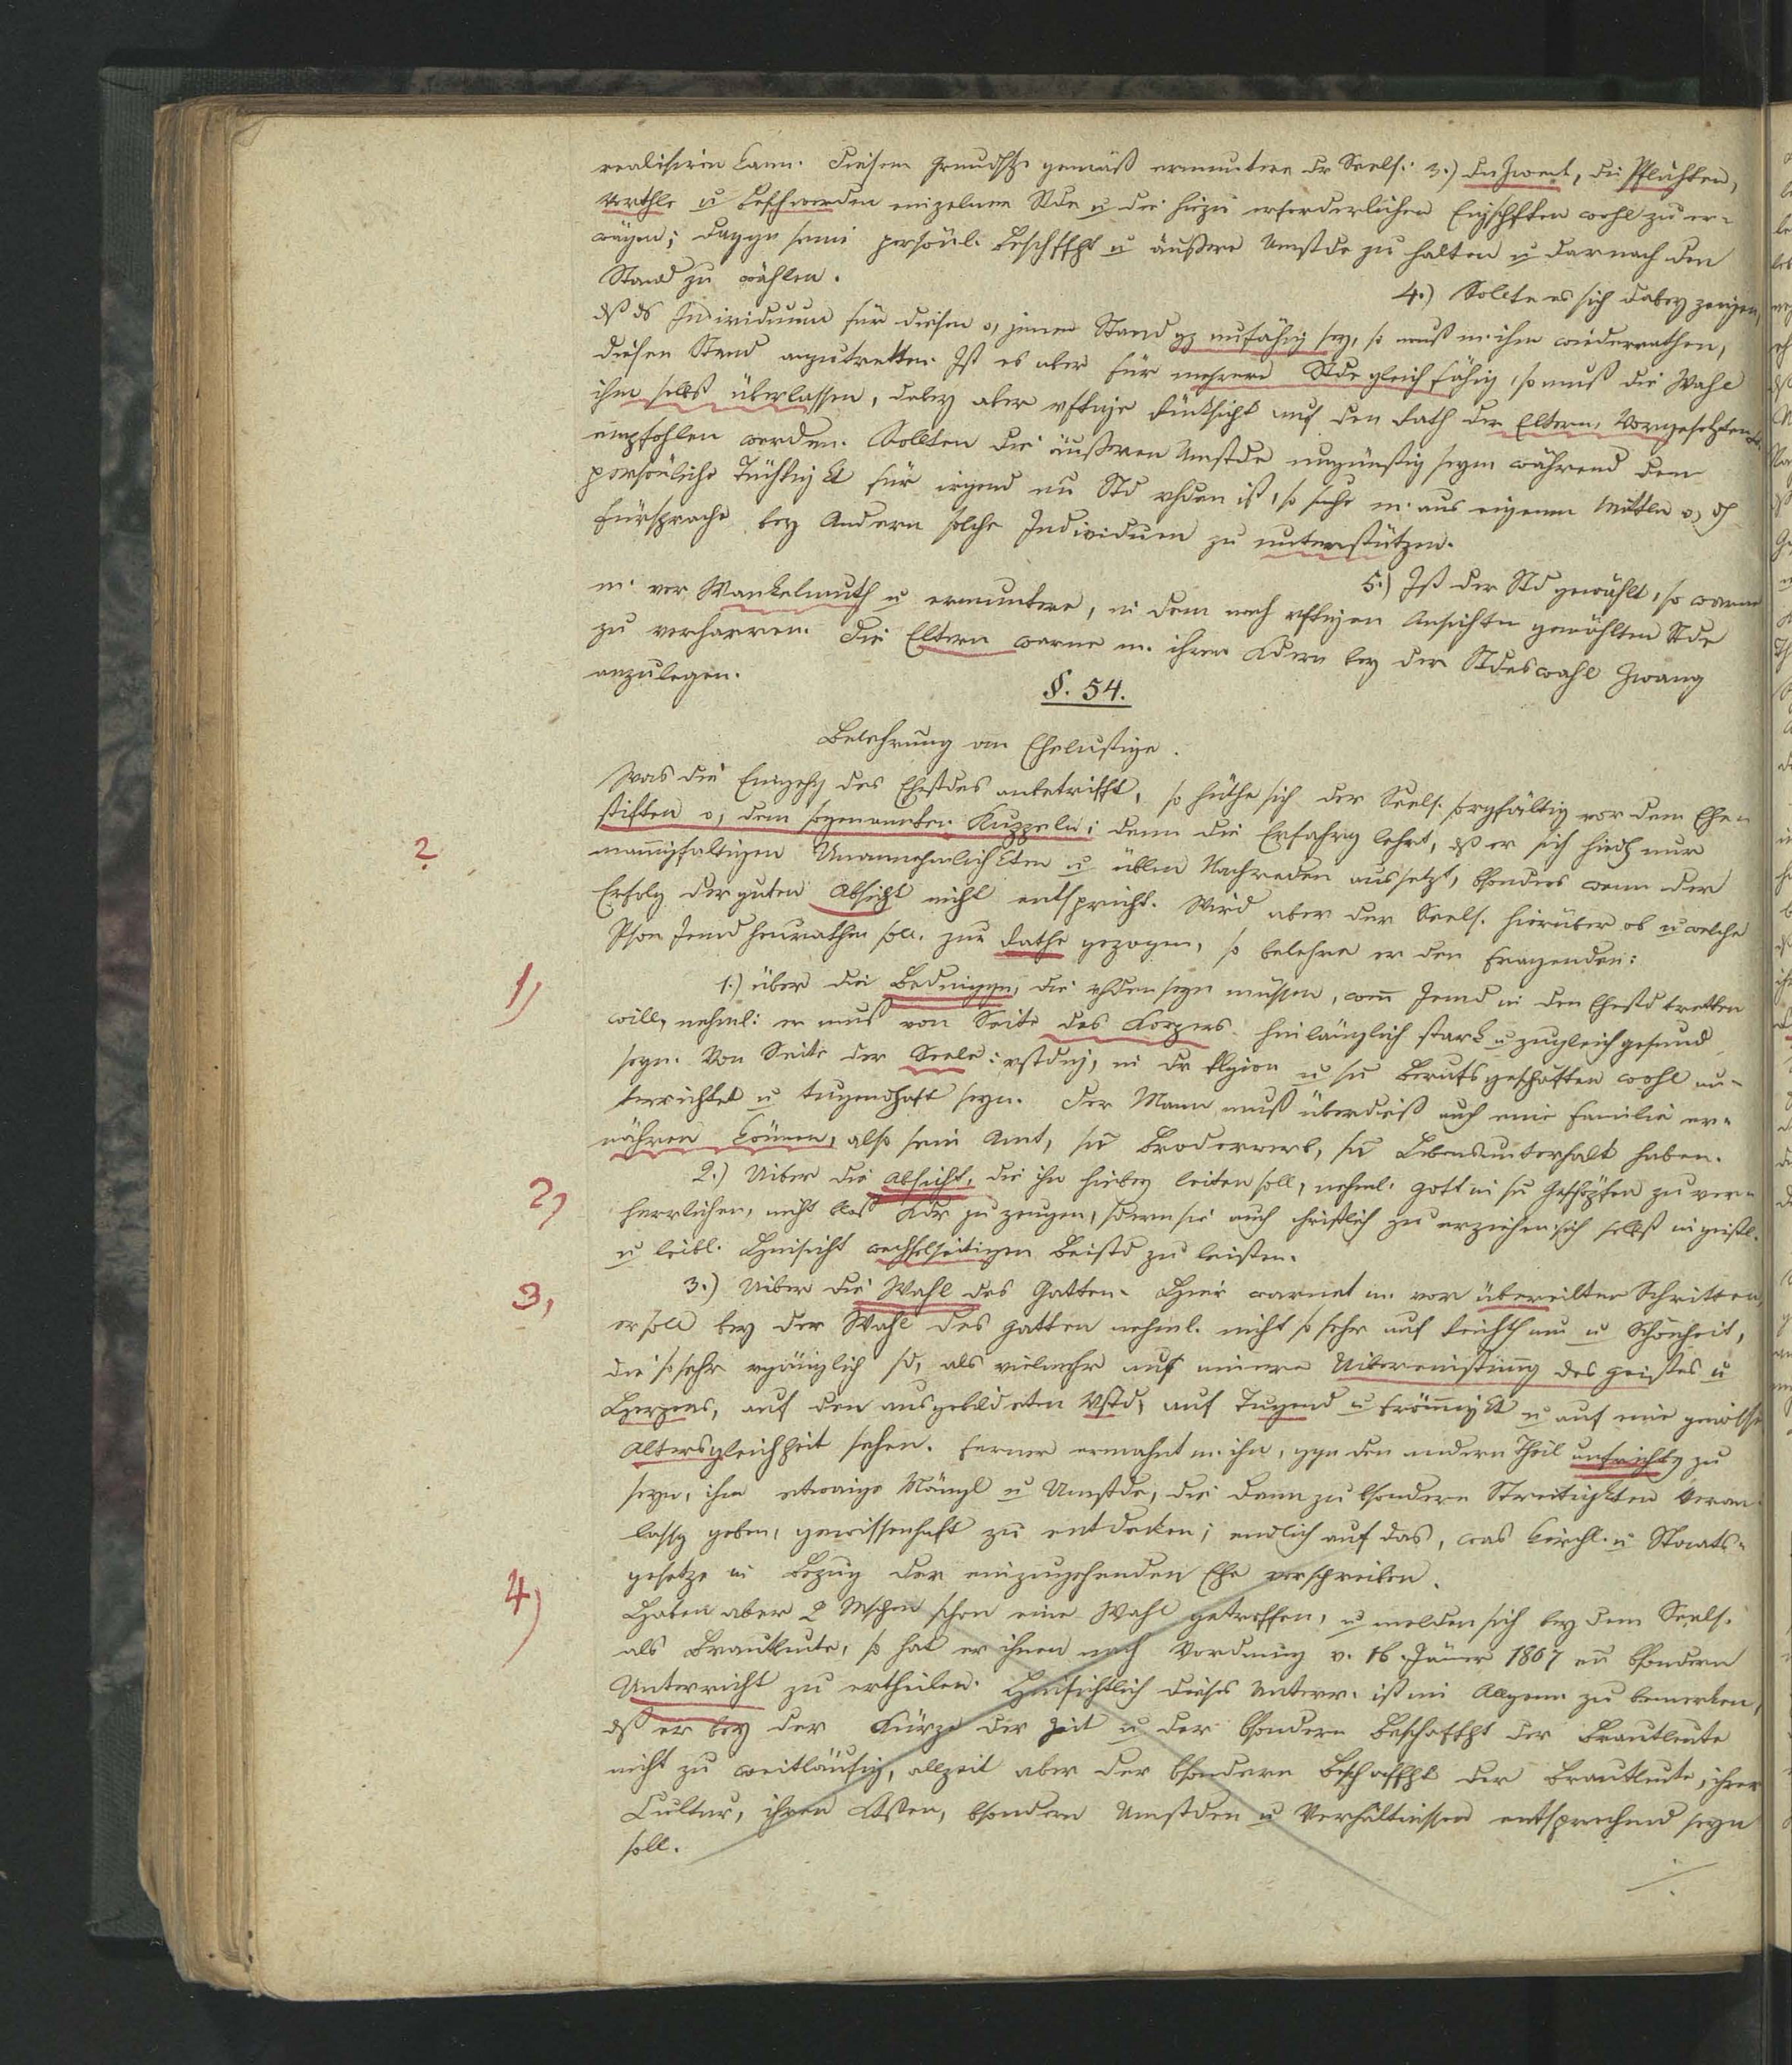 realisiren kann. Diesem Grundsz. gemäß ermuntere dr Seels. 3.) den Zweck, die Pflichten,
Vorthle u Beschwerden einzelner Stde u die hiezu erforderlichen Eigschften wohl zu er-
wägen; dagegn seine persönl. Beschffht u äußere Umstde zu halten u darnach den
Stand zu wählen.
4.) Sollte es sich dabey zeigen,
dß ds Individuum für diesen o, jenen Stand gz unfähig sey, so muß m. ihm wiederrathen,
diesen Stand anzutretten. Ist es aber für mehrere Stde gleich fähig, so muß die Wahl
ihm selbst überlassen, dabey aber Rücksicht auf den Rath der Eltern, Vorgesetzten
empfohlen werden. Sollten die äußeren Umstde ungünstig seyn während dem
persönliche Tüchtigkt für irgend ein Std vhden ist, so suche m. aus eigenen Mitteln o, dch
Fürsprache bey Andern solche Individuen zu unterstützen.
5.) Ist der Std gewählt, so warne
m. vor Wankelmuth u ermuntere, in dem nach Ansichten gewählten Stde
zu verharren. Die Eltern warne m. ihren Kdern bey der Stdeswahl Zwang
anzulegen.
§. 54.
Belehrung an Ehelustige.
Was die Eingehg des Ehestdes anbetrifft, so hüthe sich der Seels. sorgfältig vor dem Ehe-
stiften o, dem sogenannten Kuppeln; denn die Erfahrg lehrt, dß er sich hiedch nur
2
mannigfaltigen Unannehmlichkten u üblen Nachreden aussetzt, bsonders wenn der
Erfolg der guten Absicht nicht entspricht. Wird aber der Seels. hierüber ob u welche
Pson Jemd heurathen soll, zur Rathe gezogen, so belehre er den Fragenden:
1) 1.) über die Bedinggn, die vhden seyn müssen, wenn Jemd in den Ehestd tretten
will, nehml: er muß von Seite des Korpers hinlänglich stark u zugleich gesund
seyn. Von Seite der Seele: vstdig, in dr Rlgion u sn Berufsgeschäften wohl un-
terrichtet u tugendhaft seyn. Der Mann muß überdieß auch eine Familie er-
nähren können, also sein Amt, sn Broderwerb, sn Lebensunterhalt haben.
2) 2.) Uiber die Absicht, die ihn hiebey leiten soll, nehml. Gott in sn Geschöpfen zu ver-
herrlichen, nicht blos Kdr zu zeugen, sdern sie auch christlich zu erziehen, sich selbst in geistl.
u leibl. Hinsicht wechselseitigen Beistd zu leisten.
3, 3.) Uiber die Wahl des Gatten. Hier warnet m. vor übereilten Schritten,
er soll bey der Wahl des Gatten nehml. nicht so sehr auf Reichthum u Schönheit,
die so sehr vgänglich sd, als vielmehr auf innere Uibereinstimmg des Geistes u
Herzens, auf den ausgebildeten Vstd, auf Tugend u Frömmigkt u auf eine gewisse
Altersgleichheit sehen. Ferner ermahnt m. ihn, ggn den andern Theil aufrichtg zu
seyn, ihm etwaige Mängl u Umstde, die dann zu bsondern Streitigkten Veran-
lassg geben, gewissenhaft zu entdecken; endlich auf das, was kirchl. u Staats-
gesetze in Bezug der einzugehenden Ehe vorschreiben.
4) Haben aber 2 Mschen schon eine Wahl getroffen, u melden sich bey dem Seels.
als Brautleute, so hat er ihnen nach Vordnung v. 16. Jäner 1807 en bsondern
Unterricht zu ertheilen. Hinsichtlich dieses Unterr. ist im Allgem. zu bemerken,
dß er bey der Kürze der Zeit u der bsondern Beschaffht der Brautleute
nicht zu weitläufig, allzeit aber der bsondern Beschaffht der Brautleute, ihrer
Cultur, ihren bsondern Umstden u Verhältnissen entsprechend seyn
soll.